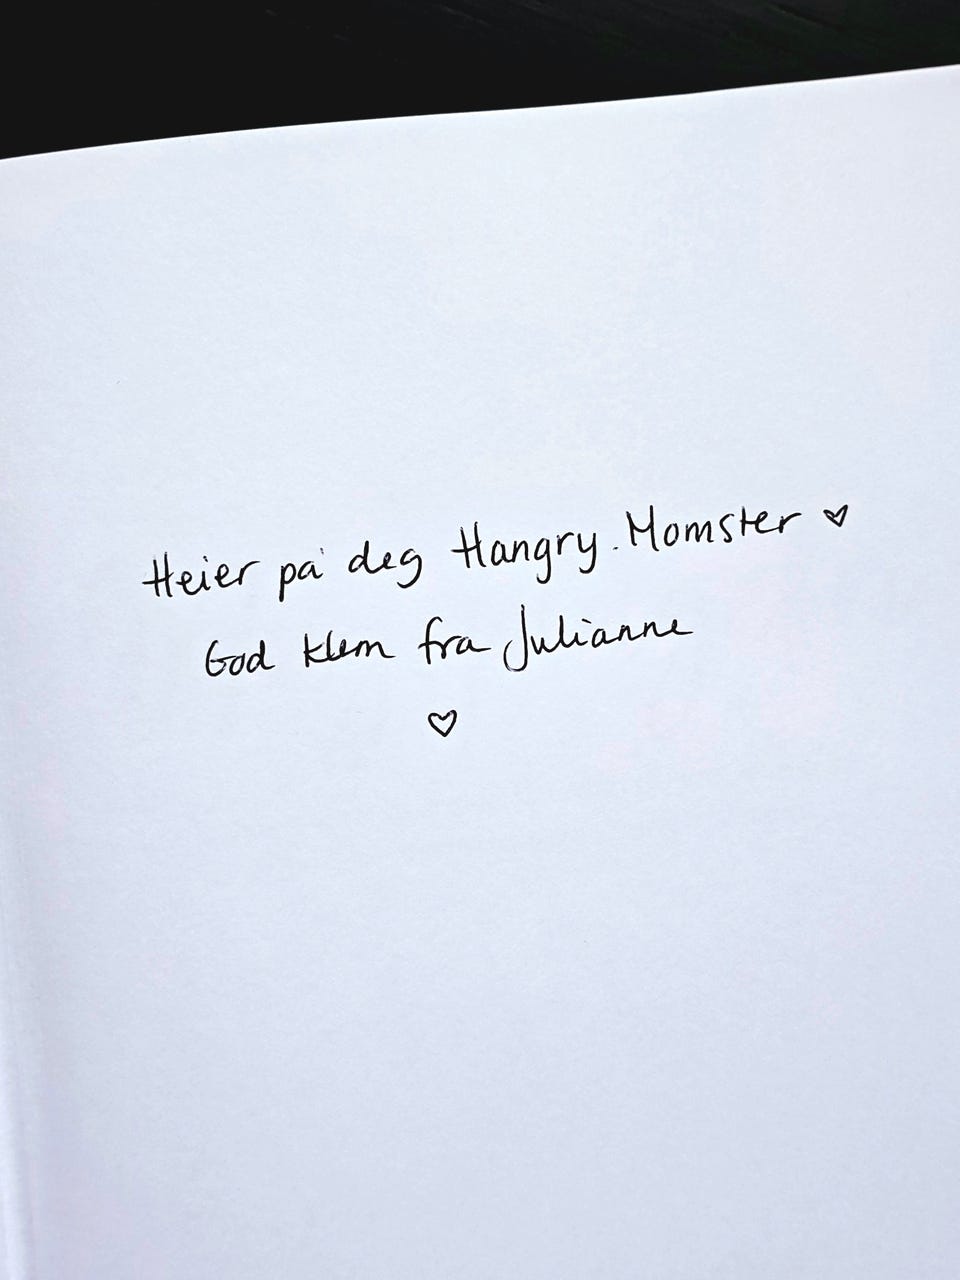 Heier på deg Hangry.Momster ♥
God klem fra Julianne
♥